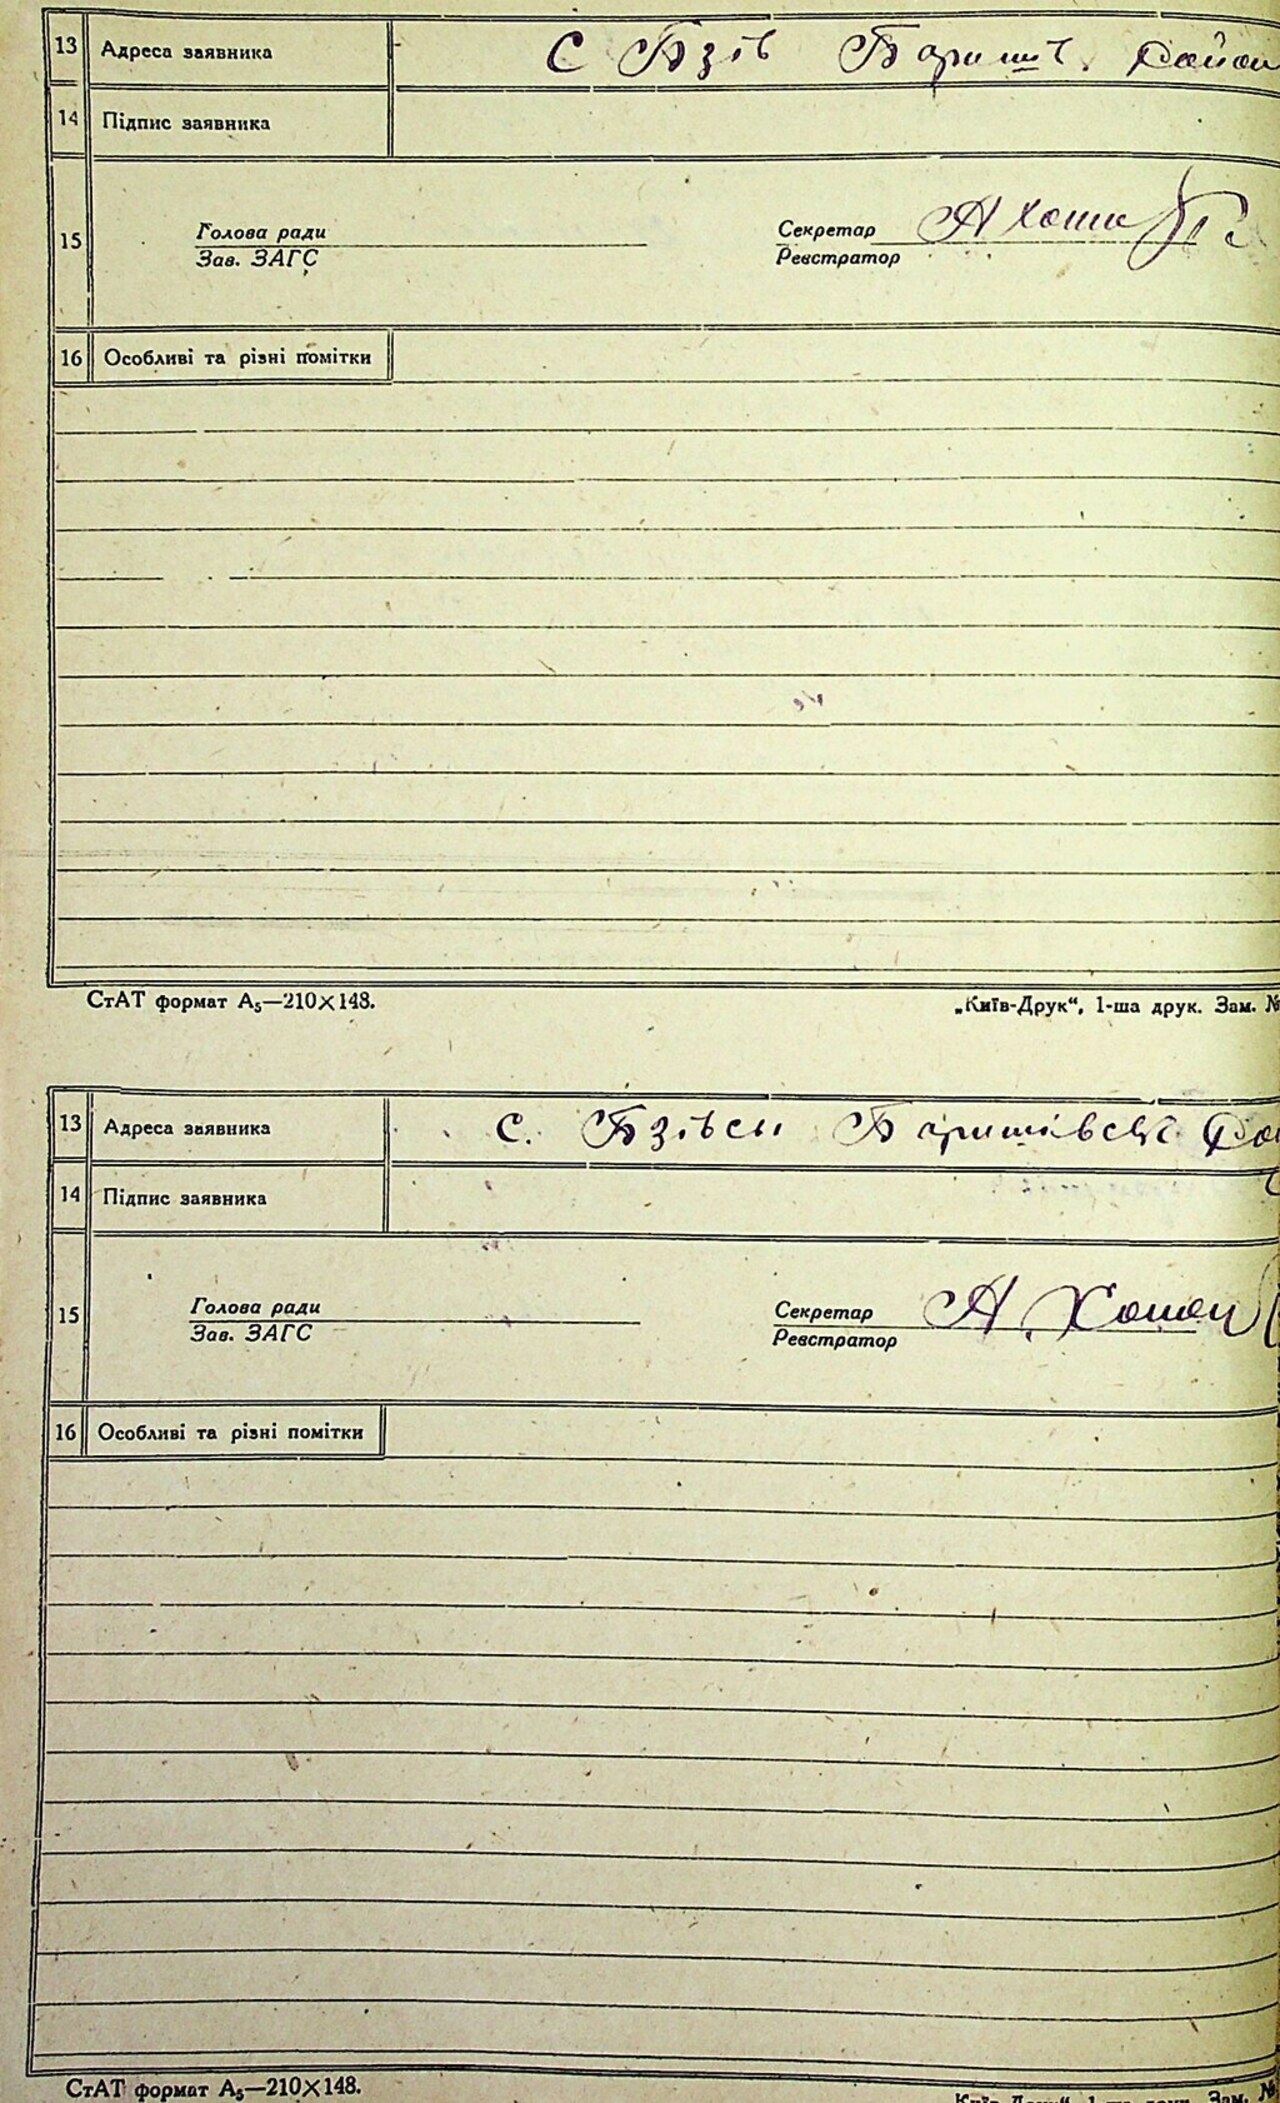 13 Адреса заявника С Бзів Бориш. район
14 Підпис заявника
15 Голова ради Секретар
Зав. ЗАГС Реєстратор
16 Особливі та різні помітки
СтАТ формат А₅—210×148. „Київ-Друк“, 1-ша друк. Зам. №
13 Адреса заявника с. Бзівси Боришівськ
14 Підпис заявника
15 Голова ради Секретар
Зав. ЗАГС Реєстратор
16 Особливі та різні помітки
СтАТ формат А₅—210×148. 1-ша друк. Зам. №